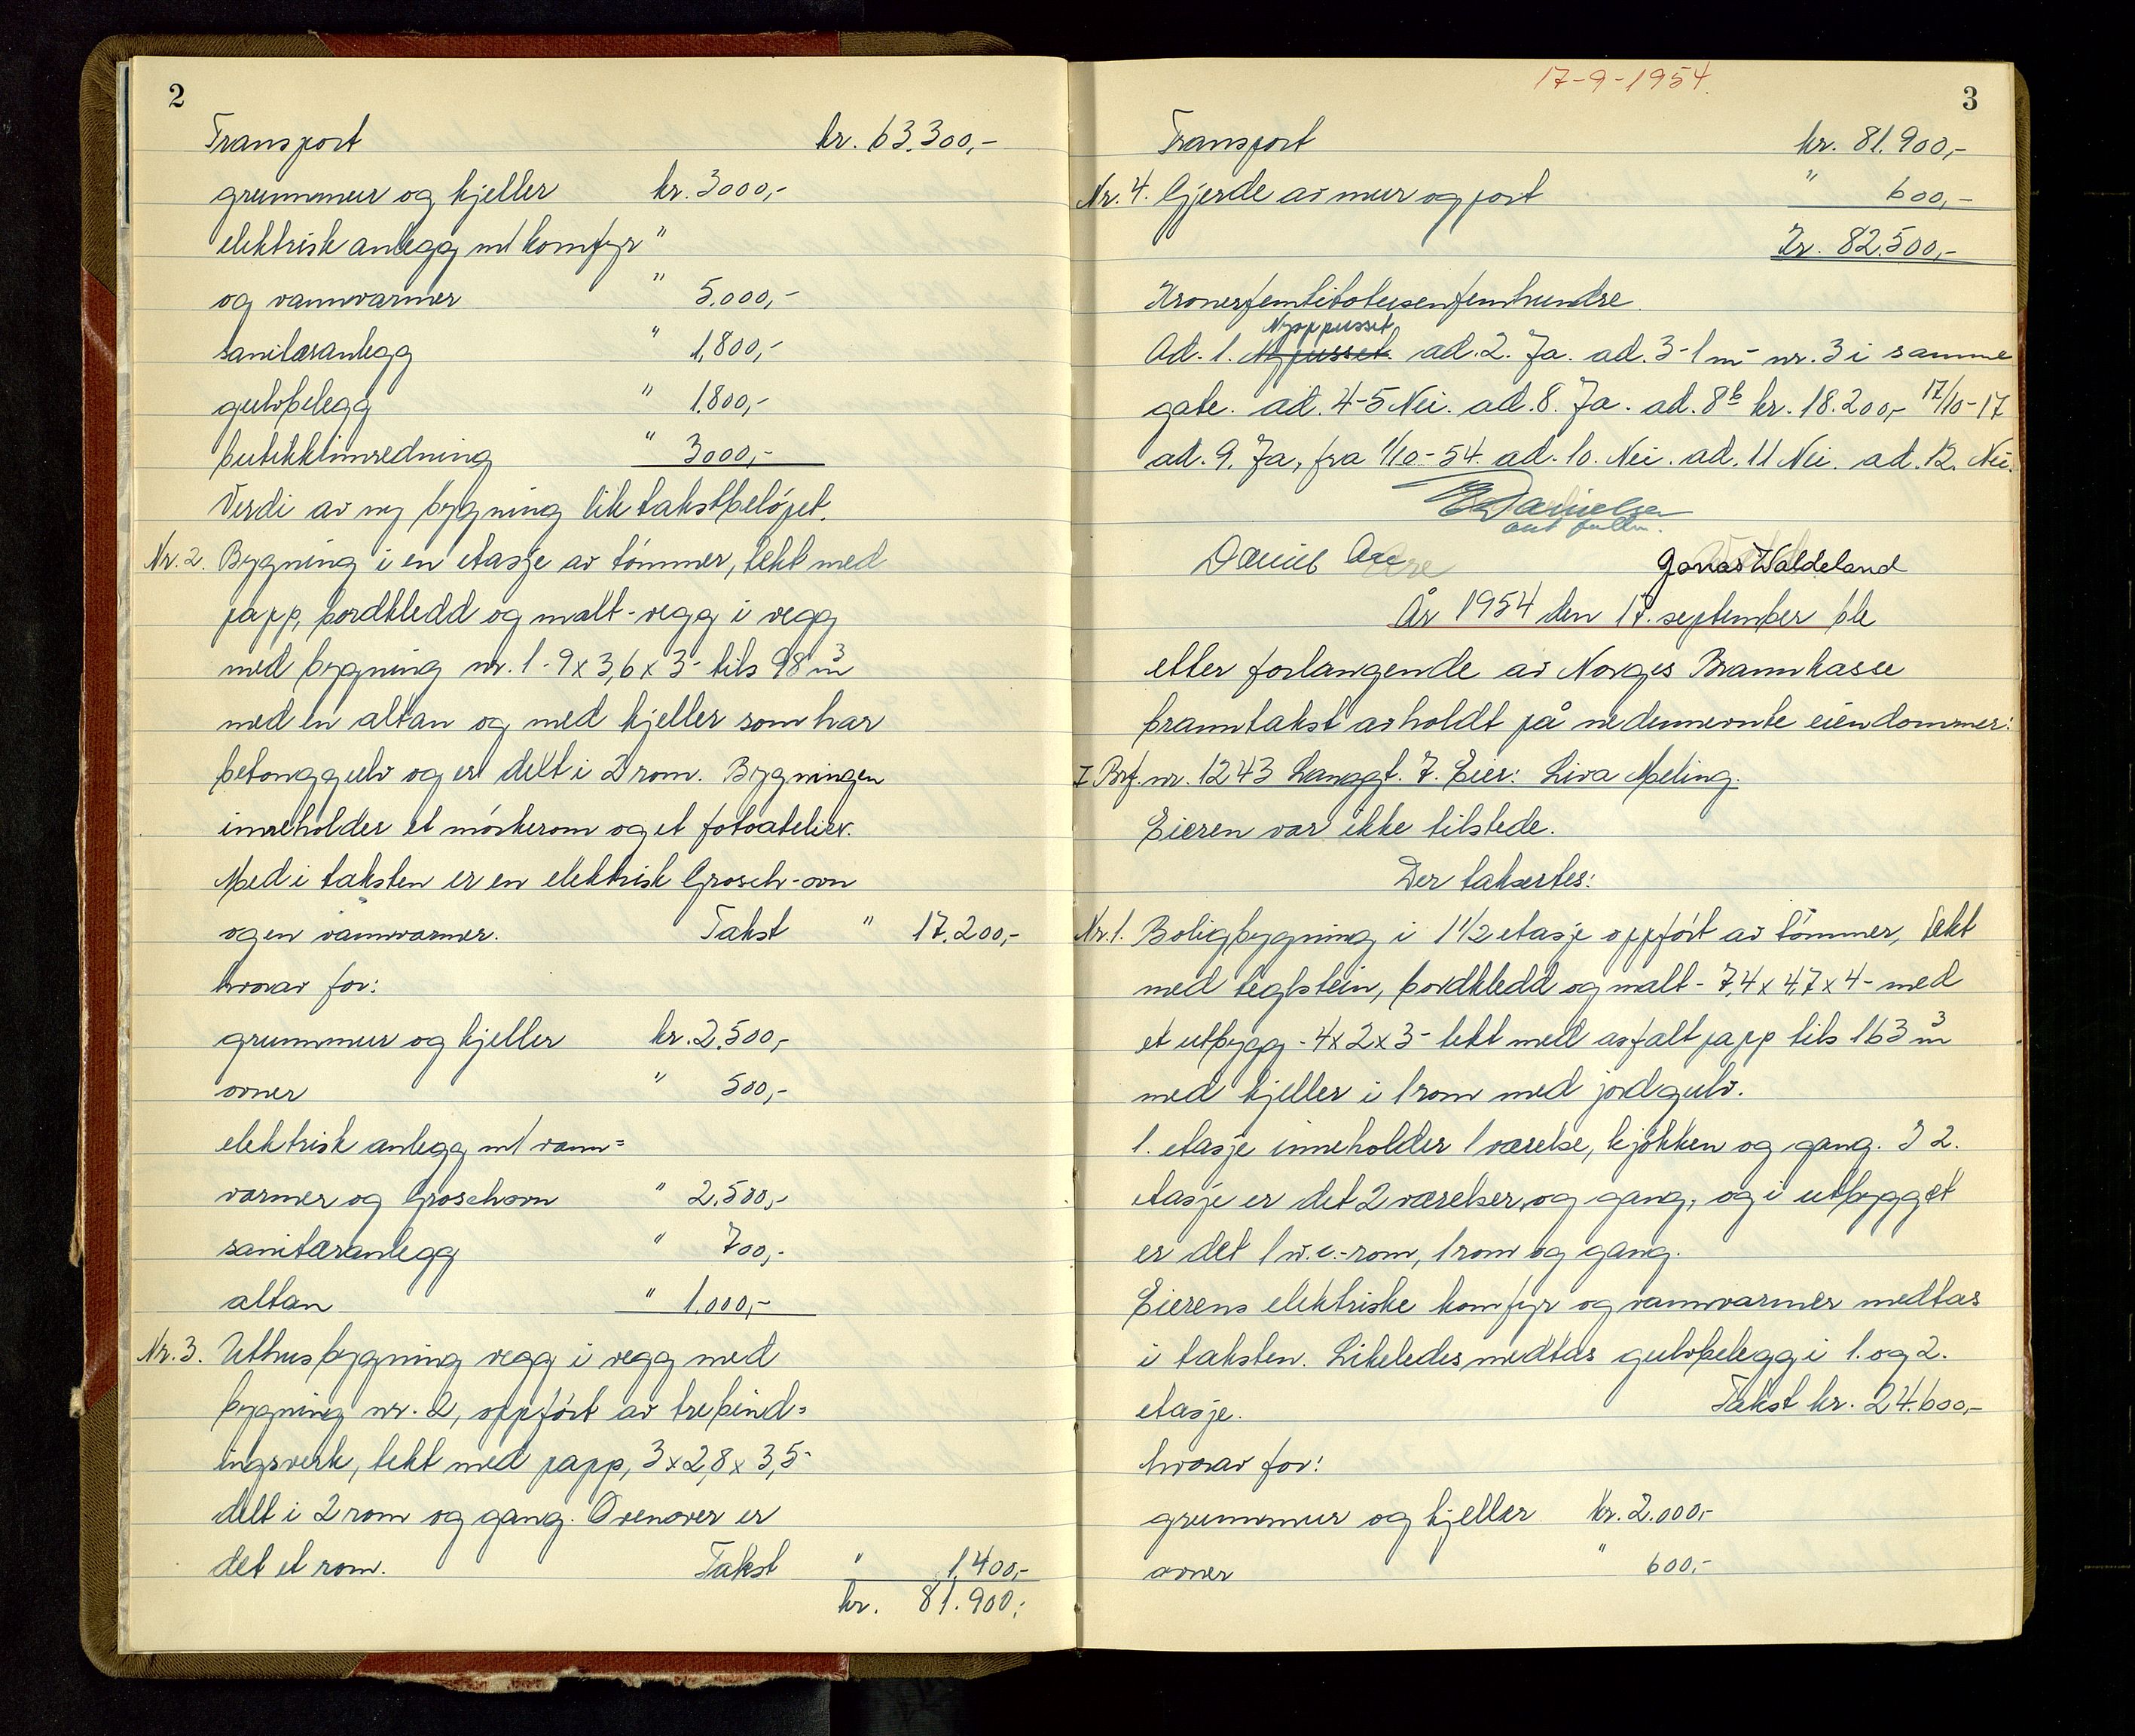 2
Transport kr. 63.300,-
grunnmur og kjeller kr. 3000,-
elektrisk anlegg m/ komfyr "
og vannvarmer " 5.000,-
sanitæranlegg " 1,800,-
gulvbelegg " 1.800,-
butikkinnredning " 3000,-
Verdi av ny bygning lik takstbeløpet.
Nr. 2. Bygning i en etasje av tømmer, tekt med
papp, bordkledd og malt - vegg i vegg
med bygning nr. 1 - 9 x 3,6 x 3 - tils 98 m3
med en altan og med kjeller som har
betonggulv og er delt i 2 rom. Bygningen
inneholder et mørkerom og et fotoatelier.
Med i taksten er en elektrisk Grosch-ovn
og en vannvarmer. Takst " 17.200,-
hvorav for:
grunnmur og kjeller kr. 2.500,-
ovner " 500,-
elektrisk anlegg m/ vann=
varmer og Groschovn " 2.500,-
sanitæranlegg " 700,-
altan " 1.000,-
Nr. 3. Uthusbygning vegg i vegg med
bygning nr. 2, oppført av trebind=
ingsverk, tekt med papp, 3 x 2,8 x 3,5-
delt i 2 rom og gang. Ovenover er
det et rom. Takst " 1.400,-
kr. 81.900,-
17-9-1954.
3
Transport kr. 81.900,-
Nr. 4. Gjerde av mur og port " 600,-
Kr. 82.500,-
Kronerfemtitotusenfemhundre.
Nyoppusset
Ad. 1. Nypusset. ad. 2. Ja. ad. 3 - 1 m - nr. 3 i samme
gate. ad. 4-5 Nei. ad. 8. Ja. ad. 8b kr. 18.200,- 17/10-17
ad. 9. Ja, fra 1/10-54. ad. 10. Nei. ad. 11 Nei. ad. 12. Nei.
E Danielsen
Daniel Aae
Jonas Waldeland
År 1954 den 17. september ble
etter forlangende av Norges Brannkasse
branntakst avholdt på nedennevnte eiendommer:
I Brf. nr. 1243 Langgt. 7. Eier: Liva Meling.
Eieren var ikke tilstede.
Der taksertes:
Nr. 1. Boligbygning i 1 1/2 etasje oppført av tømmer, tekt
med teglstein, bordkledd og malt - 7,4 x 4,7 x 4 - med
et utbygg - 4 x 2 x 3 - tekt med asfaltpapp tils 163 m3
med kjeller i 1 rom med jordgulv.
1. etasje inneholder 1 værelse, kjøkken og gang. I 2.
etasje er det 2 værelser og gang, og i utbygget
er det 1 w.c.-rom, 1 rom og gang.
Eierens elektriske komfyr og vannvarmer medtas
i taksten. Likeledes medtas gulvbelegg i 1. og 2.
etasje. Takst kr. 24.600,-
hvorav for:
grunnmur og kjeller kr. 2.000,-
ovner " 600,-